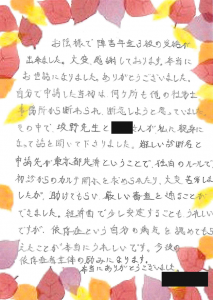 お陰様で障害年金2級の受給が
出来ました。大変感謝しております。本当に
お世話になりました。ありがとうございました。
自分で申請した当初は何ヶ所も他の社労士
事務所から断わられ、断念しようと思っていました。
その中で、坂野先生と
さんが私に親身に
なって話を聞いて下さりました。難しい診断名と
申請先が東京都足立ということで、独自のルールで
初診からのカルテ開示を求められたり、大変苦労しま
したが、助けてもらい厳しい審査を通ることが
できました。経済面で少し安定することもうれしい
ですが、依存症という自分の病気を認めてもら
えたことが本当にうれしいです。今後の
依存症者全体の励みになります。
本当にありがとうございました。